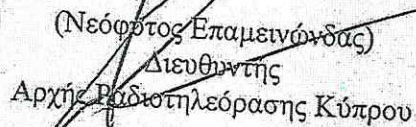 (Νεόφυτος Επαμεινώνδας)
Διευθυντής
Αρχής Ραδιοτηλεόρασης Κύπρου